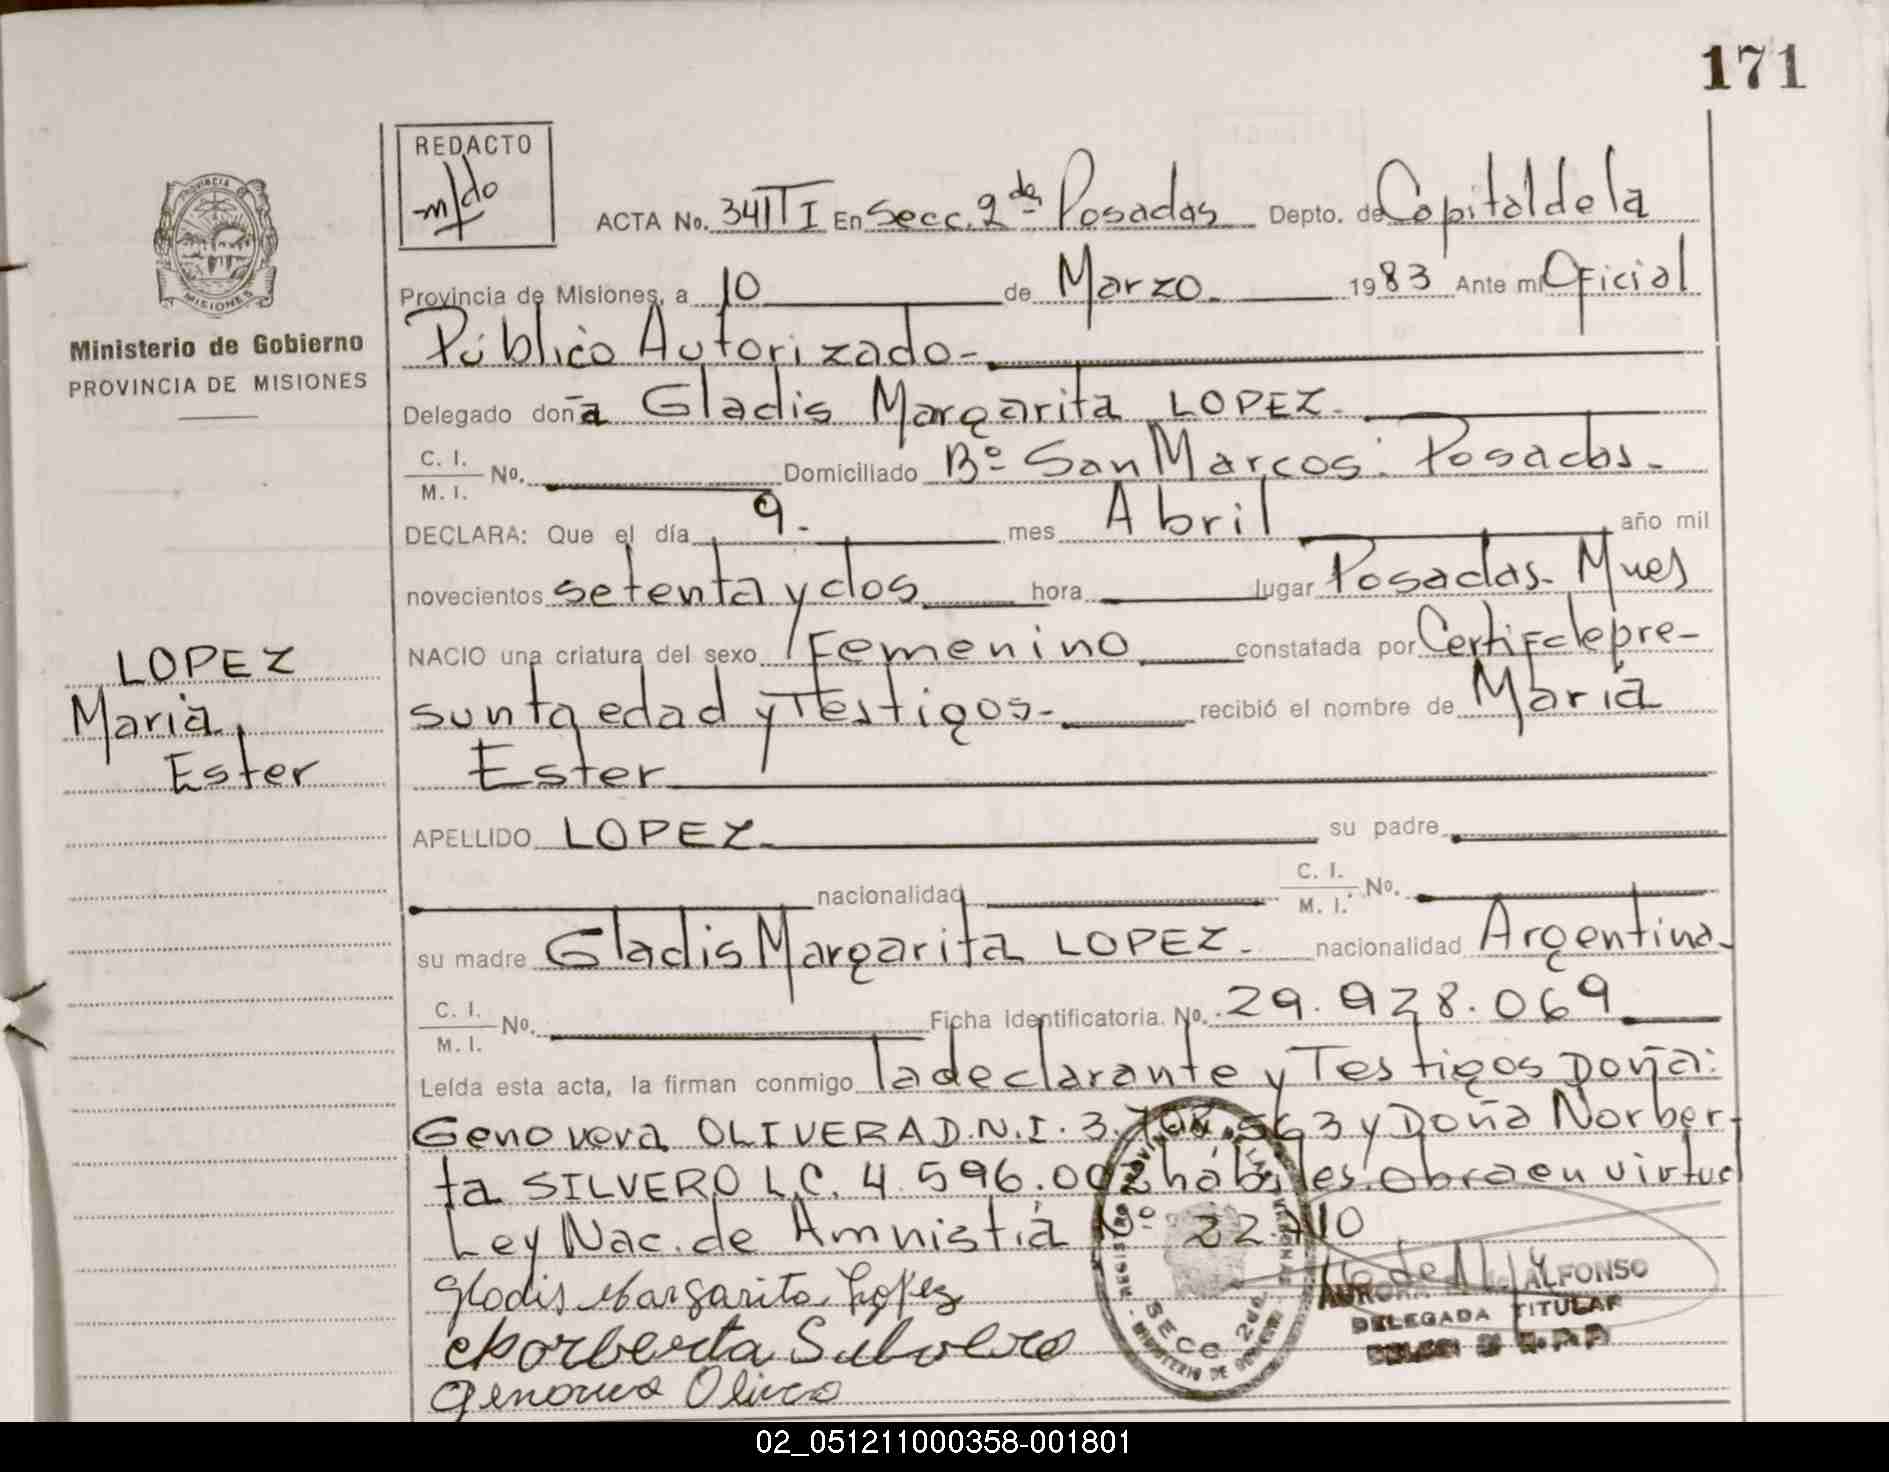 171
REDACTO
m/do
PROVINCIA
MISIONES
Ministerio de Gobierno
PROVINCIA DE MISIONES
ACTA No. 341 T I En Secc. 2da Posadas Depto. de Capital de la
Provincia de Misiones, a 10 de Marzo. 1983 Ante mi Oficial
Público Autorizado-
Delegado doña Gladis Margarita LOPEZ.
C. I.
M. I. No. Domiciliado Bº San Marcos. Posadas.
DECLARA: Que el día 9. mes Abril año mil
novecientos setenta y dos hora lugar Posadas. Mnes
NACIO una criatura del sexo Femenino constatada por Certif de pre-
sunta edad y Testigos- recibió el nombre de María
Ester
LOPEZ
María
Ester
APELLIDO LOPEZ su padre
nacionalidad C. I.
M. I. No.
su madre Gladis Margarita LOPEZ. nacionalidad Argentina.
C. I.
M. I. No. Ficha identificatoria. No. 29.928.069
Leída esta acta, la firman conmigo la declarante y Testigos Doña:
Genoveva OLIVERA D.N.I. 3. 563 y Doña Norber-
ta SILVERO L.C. 4.596.002 hábiles. obra en virtud
Ley Nac. de Amnistía Nº 22.710
Gladis Margarita Lopez
Norberta Silvero
Genoveva Olivera
SECC 2da
MINISTERIO DE GOBIERNO
AURORA ALFONSO
DELEGADA TITULAR
02_051211000358-001801